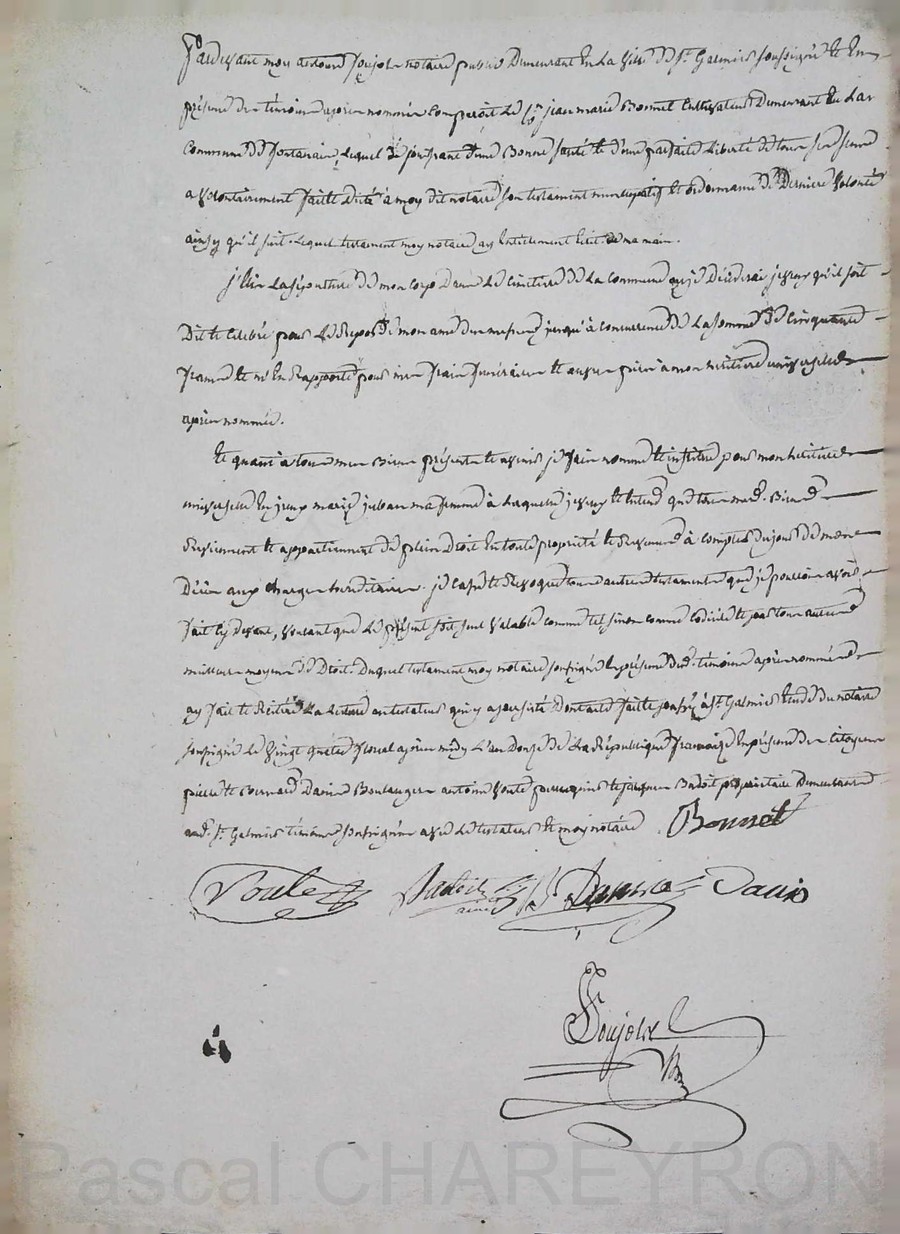 Pardevant moy notaire public demeurant en la ville de St. Galmier soussigné et en
présence des témoins après nommés comparoit le Sr. jean marie Bonnet cultivateur demeurant en la
commune de Lequel jouissant d'une Bonne santé et d'une parfaite Liberté de tous ses sens
a volontairement faitte dicté à moy dit notaire son testament nuncupatif et ordonnance de Dernière volonté
ainsy qu'il suit. Lequel testament moy notaire ay Entièrement Ecrit de ma main.
j'Elis La sépulture de mon corps dans Le Cimetière de La commune que je Décéderai je veux qu'il soit
Dit et Célébré pour Le Repos de mon ame des messes jusqu'à concurrence de La somme de Cinquante
francs et m'En Rapporte pour mes frais funéraires et à mon héritière universelle
après nommée.
Et quant à tous mes Biens présents et avenir je fais nomme et institue pour mon héritière
universelle ma femme à Laquelle je veux et Entend que tous mes d. Biens
Reviennent et appartiennent de plein Droit En toute propriété et Revenus à compter du jour de mon
Décès aux charges héréditaires. je casse et Révoque tous autres testaments que je pourrois avoir
fait cy devant, voulant que Le présent soit seul valable comme tel sinon comme codicile et par tous autres
meilleurs moyens de Droit. Duquel testament moy notaire soussigné En présence des d. témoins après nommés
ay fait et Réitéré La Lecture au testateur qui y a persisté Dont acte faitte à St. Galmier Etude du notaire
soussigné Le vingt quatre floréal après midy L'an Douze de La République française En présence des citoyens
pierre et Bernard Boulangers antoine et Badoit propriétaire Demeurants
aud. St. Galmier témoins soussignés avec Le testateur Et moy notaire Bonnet
Badoit
ainé
Soujol
Pascal CHAREYRON